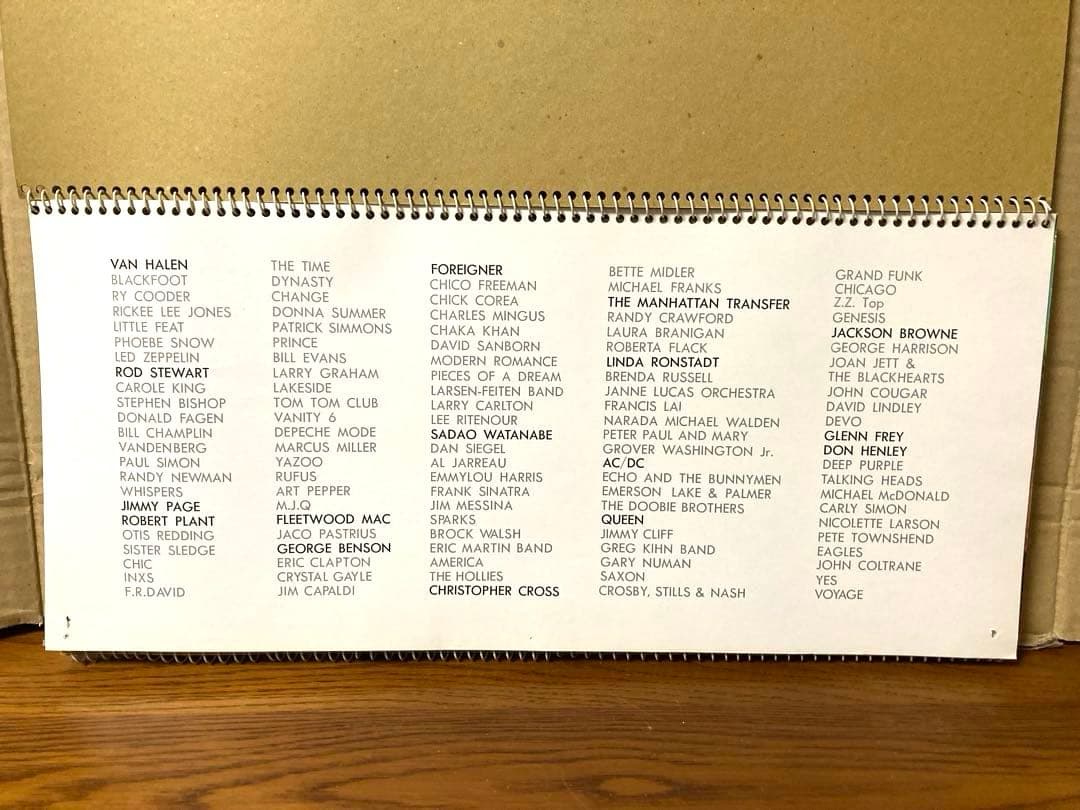 VAN HALEN
BLACKFOOT
RY COODER
RICKEE LEE JONES
LITTLE FEAT
PHOEBE SNOW
LED ZEPPELIN
ROD STEWART
CAROLE KING
STEPHEN BISHOP
DONALD FAGEN
BILL CHAMPLIN
VANDENBERG
PAUL SIMON
RANDY NEWMAN
WHISPERS
JIMMY PAGE
ROBERT PLANT
OTIS REDDING
SISTER SLEDGE
CHIC
INXS
F.R.DAVID
THE TIME
DYNASTY
CHANGE
DONNA SUMMER
PATRICK SIMMONS
PRINCE
BILL EVANS
LARRY GRAHAM
LAKESIDE
TOM TOM CLUB
VANITY 6
DEPECHE MODE
MARCUS MILLER
YAZOO
RUFUS
ART PEPPER
M.J.Q
FLEETWOOD MAC
JACO PASTRIUS
GEORGE BENSON
ERIC CLAPTON
CRYSTAL GAYLE
JIM CAPALDI
FOREIGNER
CHICO FREEMAN
CHICK COREA
CHARLES MINGUS
CHAKA KHAN
DAVID SANBORN
MODERN ROMANCE
PIECES OF A DREAM
LARSEN-FEITEN BAND
LARRY CARLTON
LEE RITENOUR
SADAO WATANABE
DAN SIEGEL
AL JARREAU
EMMYLOU HARRIS
FRANK SINATRA
JIM MESSINA
SPARKS
BROCK WALSH
ERIC MARTIN BAND
AMERICA
THE HOLLIES
CHRISTOPHER CROSS
BETTE MIDLER
MICHAEL FRANKS
THE MANHATTAN TRANSFER
RANDY CRAWFORD
LAURA BRANIGAN
ROBERTA FLACK
LINDA RONSTADT
BRENDA RUSSELL
JANNE LUCAS ORCHESTRA
FRANCIS LAI
NARADA MICHAEL WALDEN
PETER PAUL AND MARY
GROVER WASHINGTON Jr.
AC/DC
ECHO AND THE BUNNYMEN
EMERSON LAKE & PALMER
THE DOOBIE BROTHERS
QUEEN
JIMMY CLIFF
GREG KIHN BAND
GARY NUMAN
SAXON
CROSBY, STILLS & NASH
GRAND FUNK
CHICAGO
Z.Z. Top
GENESIS
JACKSON BROWNE
GEORGE HARRISON
JOAN JETT &
THE BLACKHEARTS
JOHN COUGAR
DAVID LINDLEY
DEVO
GLENN FREY
DON HENLEY
DEEP PURPLE
TALKING HEADS
MICHAEL McDONALD
CARLY SIMON
NICOLETTE LARSON
PETE TOWNSHEND
EAGLES
JOHN COLTRANE
YES
VOYAGE